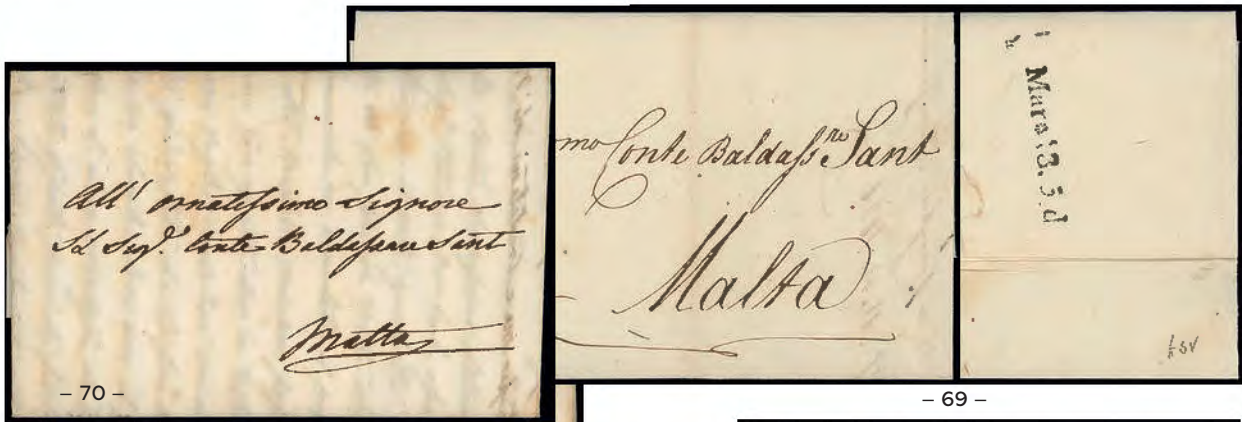 All' ornatissimo Signore
Conte Baldassare Sant
Malta
– 70 –
Conte Baldassre Sant
Malta
– 69 –